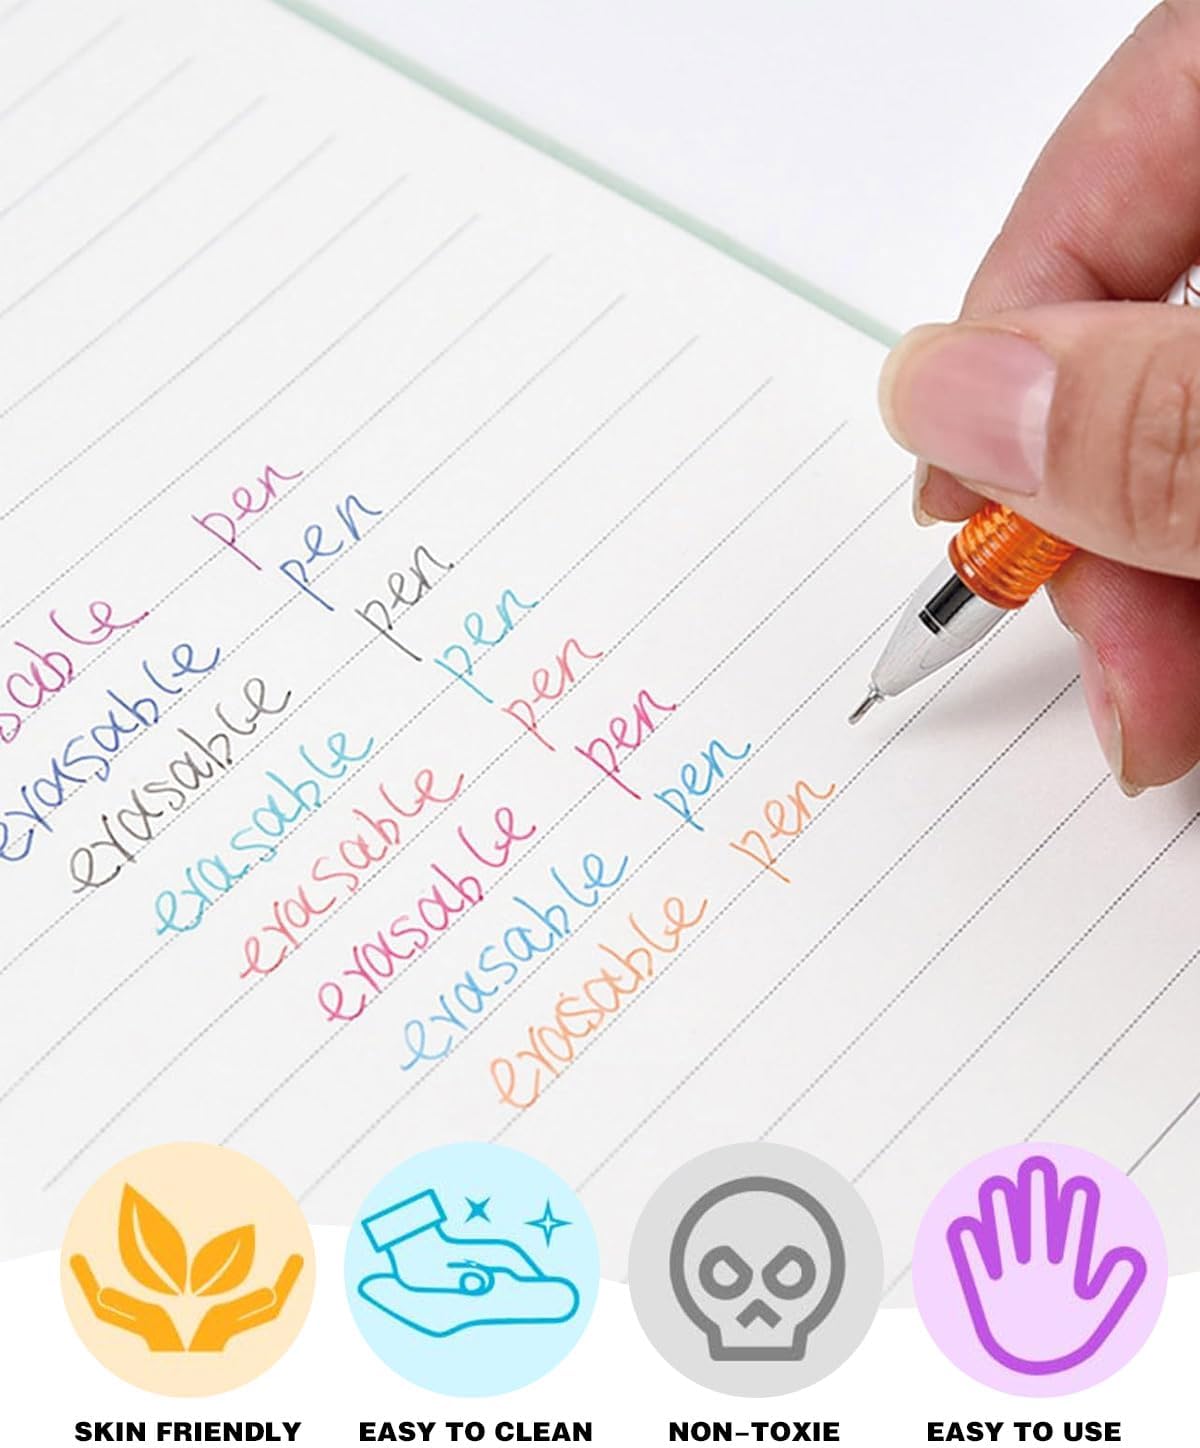 scable pen
erasable pen
erasable pen
erasable pen
erasable pen
erasable pen
erasable pen
erasable pen
SKIN FRIENDLY
EASY TO CLEAN
NON-TOXIE
EASY TO USE